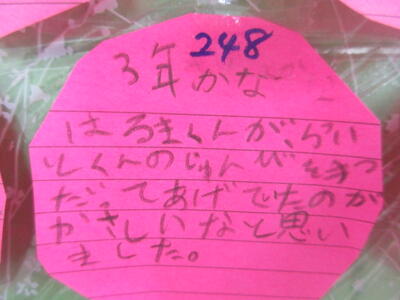 248
3年 かな
はるまくんが、らい
しくんのじゅんびをまつ
だってあげでたのが
やさしいなと思い
ました。